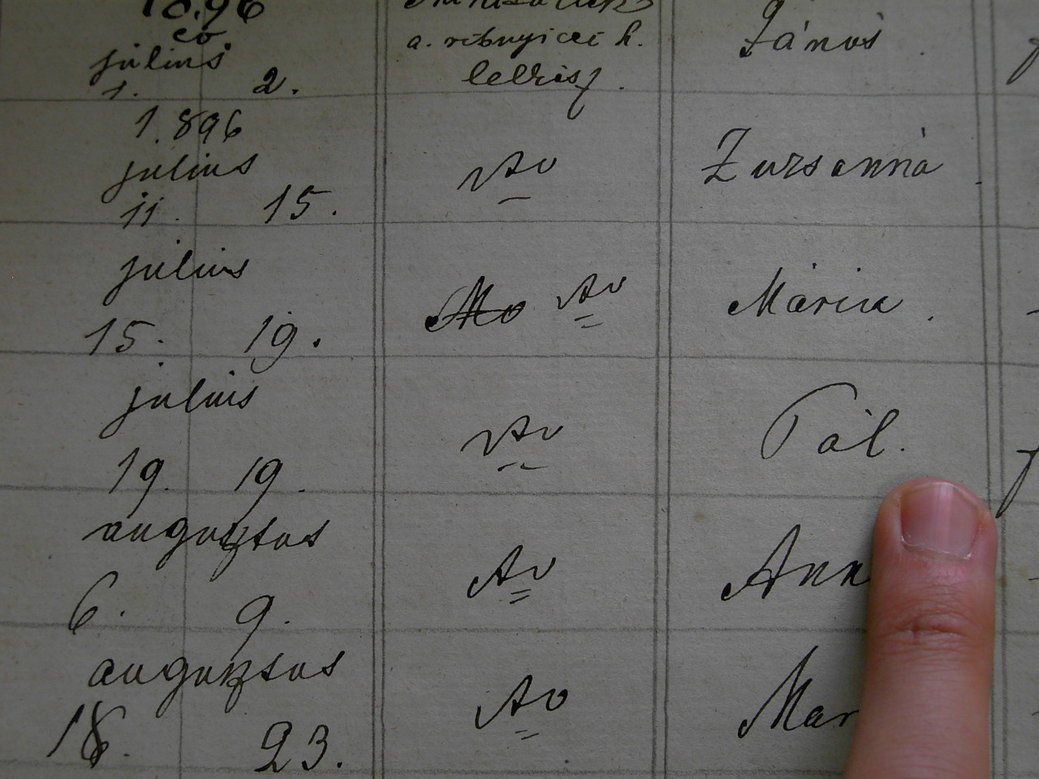 1896
július
1. 2.
lelkész.
János
1896
július
11. 15.
Av
Zsuzsanna
július
15. 19.
Av
Mária
július
19. 19.
Av
Pál.
augusztus
6. 9.
Av
Ann
augusztus
18. 23.
Av
Mar